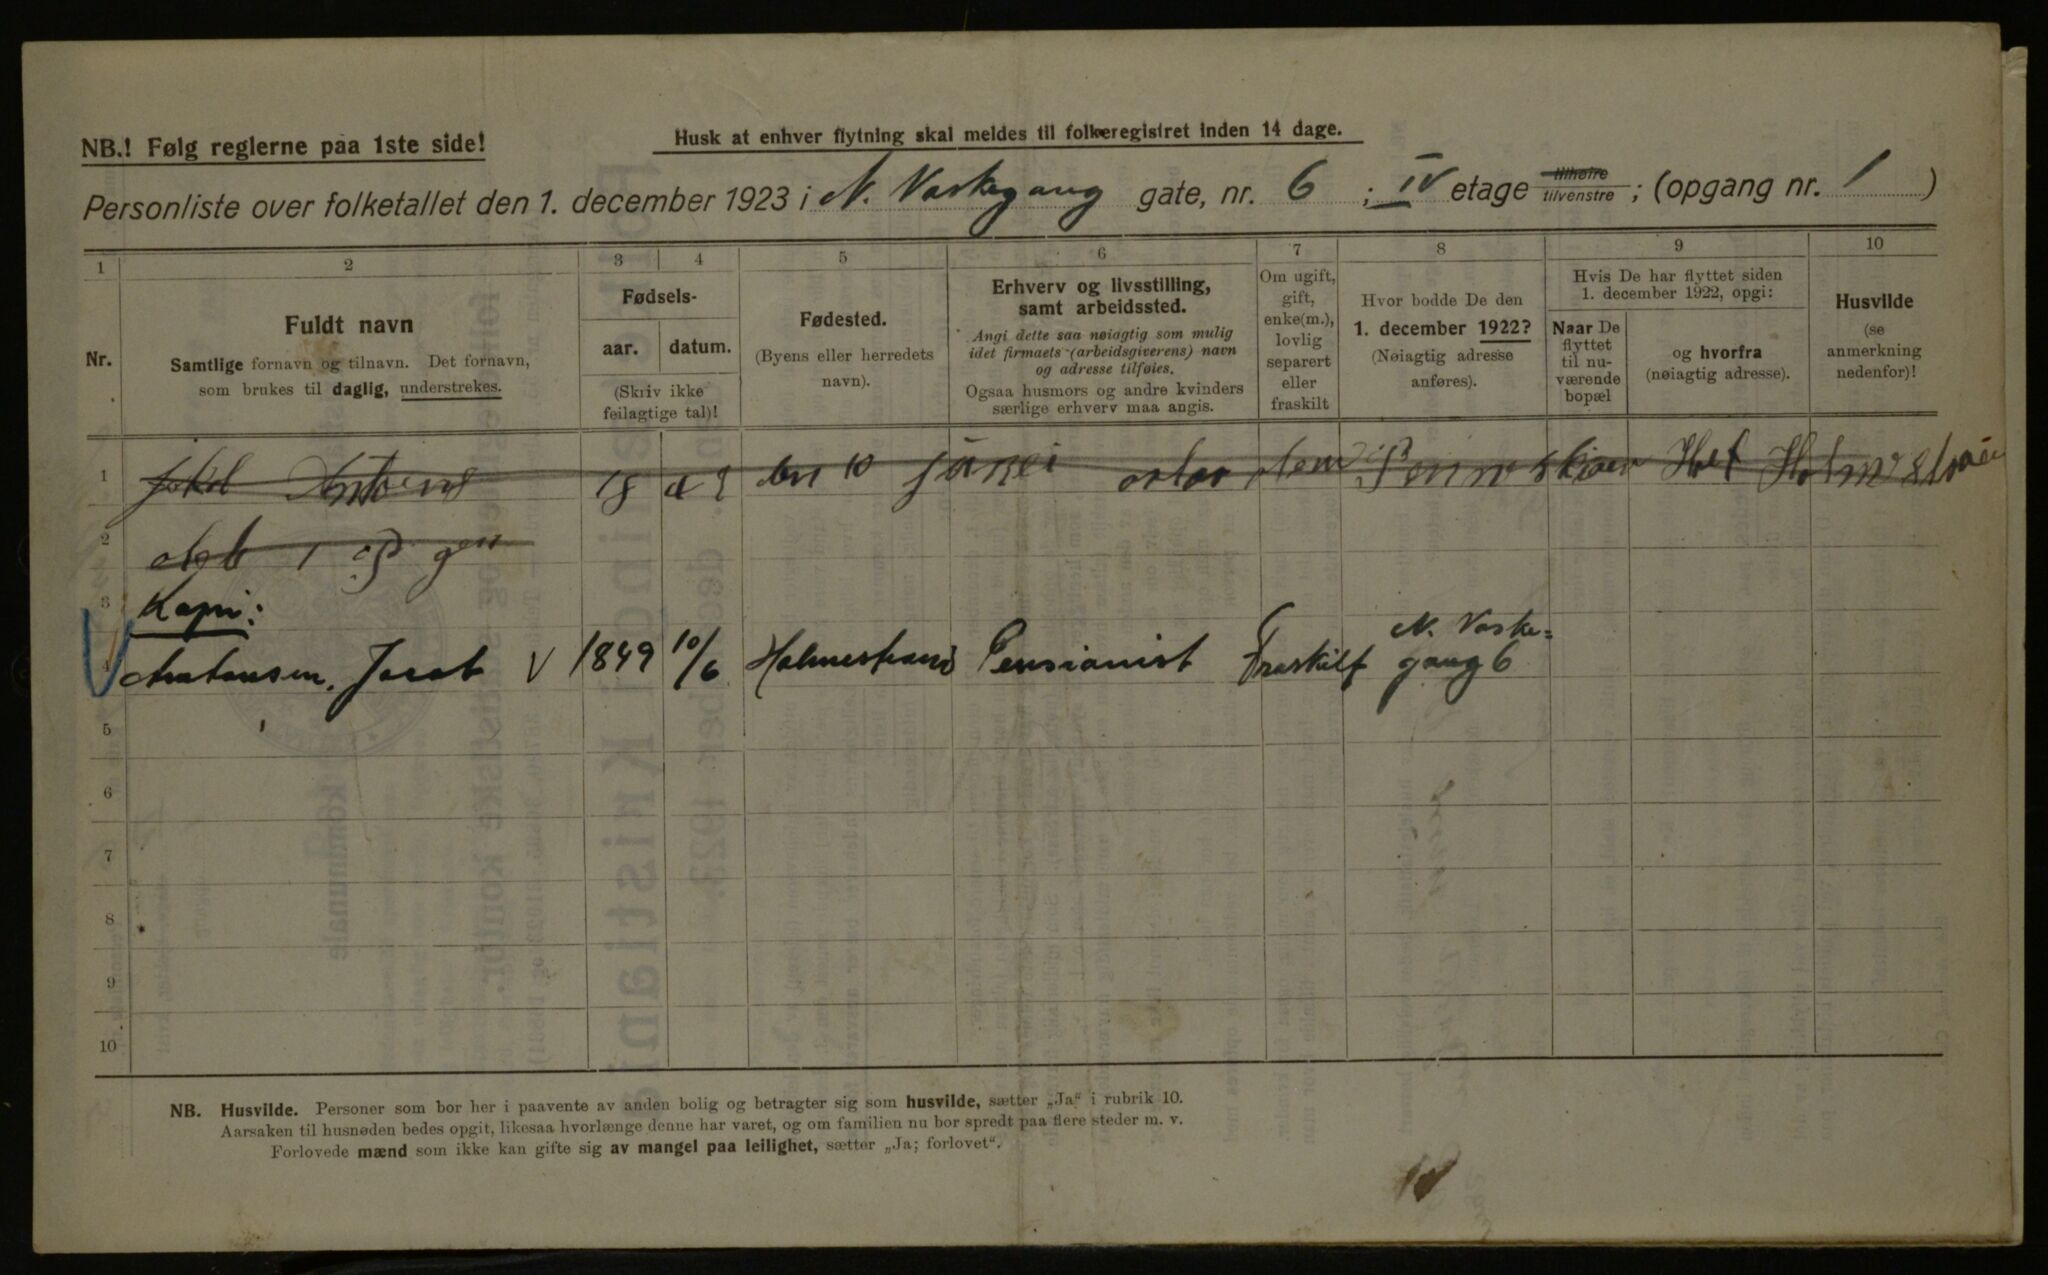 NB.! Følg reglerne paa 1ste side!
Husk at enhver flytning skal meldes til folkeregistret inden 14 dage.
Personliste over folketallet den 1. december 1923 i N. Vaskegang gate, nr. 6 ; IV etage tilhøire tilvenstre ; (opgang nr. 1 )
1 2 3 4 5 6 7 8 9 10
Nr.
Fuldt navn
Samtlige fornavn og tilnavn. Det fornavn,
som brukes til daglig, understrekes.
Fødsels-
aar. datum.
(Skriv ikke
feilagtige tal)!
Fødested.
(Byens eller herredets
navn).
Erhverv og livsstilling,
samt arbeidssted.
Angi dette saa nøiagtig som mulig
idet firmaets (arbeidsgiverens) navn
og adresse tilføies.
Ogsaa husmors og andre kvinders
særlige erhverv maa angis.
Om ugift,
gift,
enke(m.),
lovlig
separert
eller
fraskilt
Hvor bodde De den
1. december 1922?
(Nøiagtig adresse
anføres).
Hvis De har flyttet siden
1. december 1922, opgi:
Naar De
flyttet
til nu-
værende
bopæl
og hvorfra
(nøiagtig adresse).
Husvilde
(se
anmerkning
nedenfor)!
1 18 49 den 10
2
3 Kopi:
N. Vaske=
4 Jacob V 1849 10/6 Holmestrand Pensionist Fraskilt gang 6
5
6
7
8
9
10
NB. Husvilde. Personer som bor her i paavente av anden bolig og betragter sig som husvilde, sætter „Ja“ i rubrik 10.
Aarsaken til husnøden bedes opgit, likesaa hvorlænge denne har varet, og om familien nu bor spredt paa flere steder m. v.
Forlovede mænd som ikke kan gifte sig av mangel paa leilighet, sætter „Ja; forlovet“.